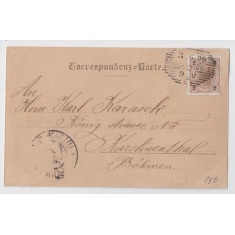 Correspondenz-Karte
An
Herrn Karl Karasek
König strasse
Karolinenthal
Böhmen